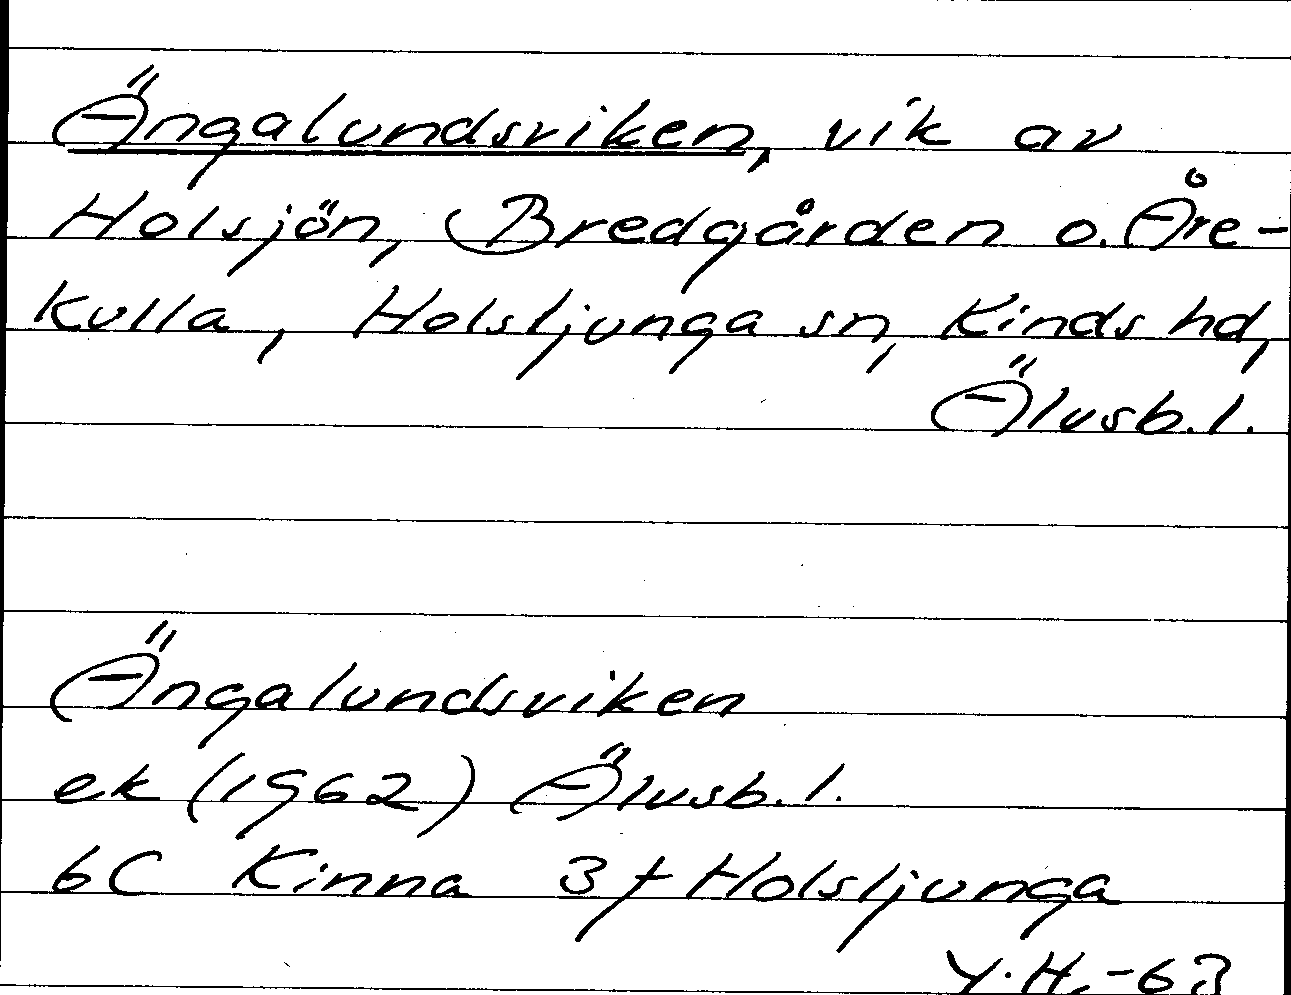 Ängalundsviken, vik av
Holsjön, Bredgården o. Åre-
kulla, Holsljunga sn, Kinds hd,
Älvsb. l.
Ängalundsviken
ek (1962) Älvsb. l.
6C Kinna 3f Holsljunga
Y. H. -63